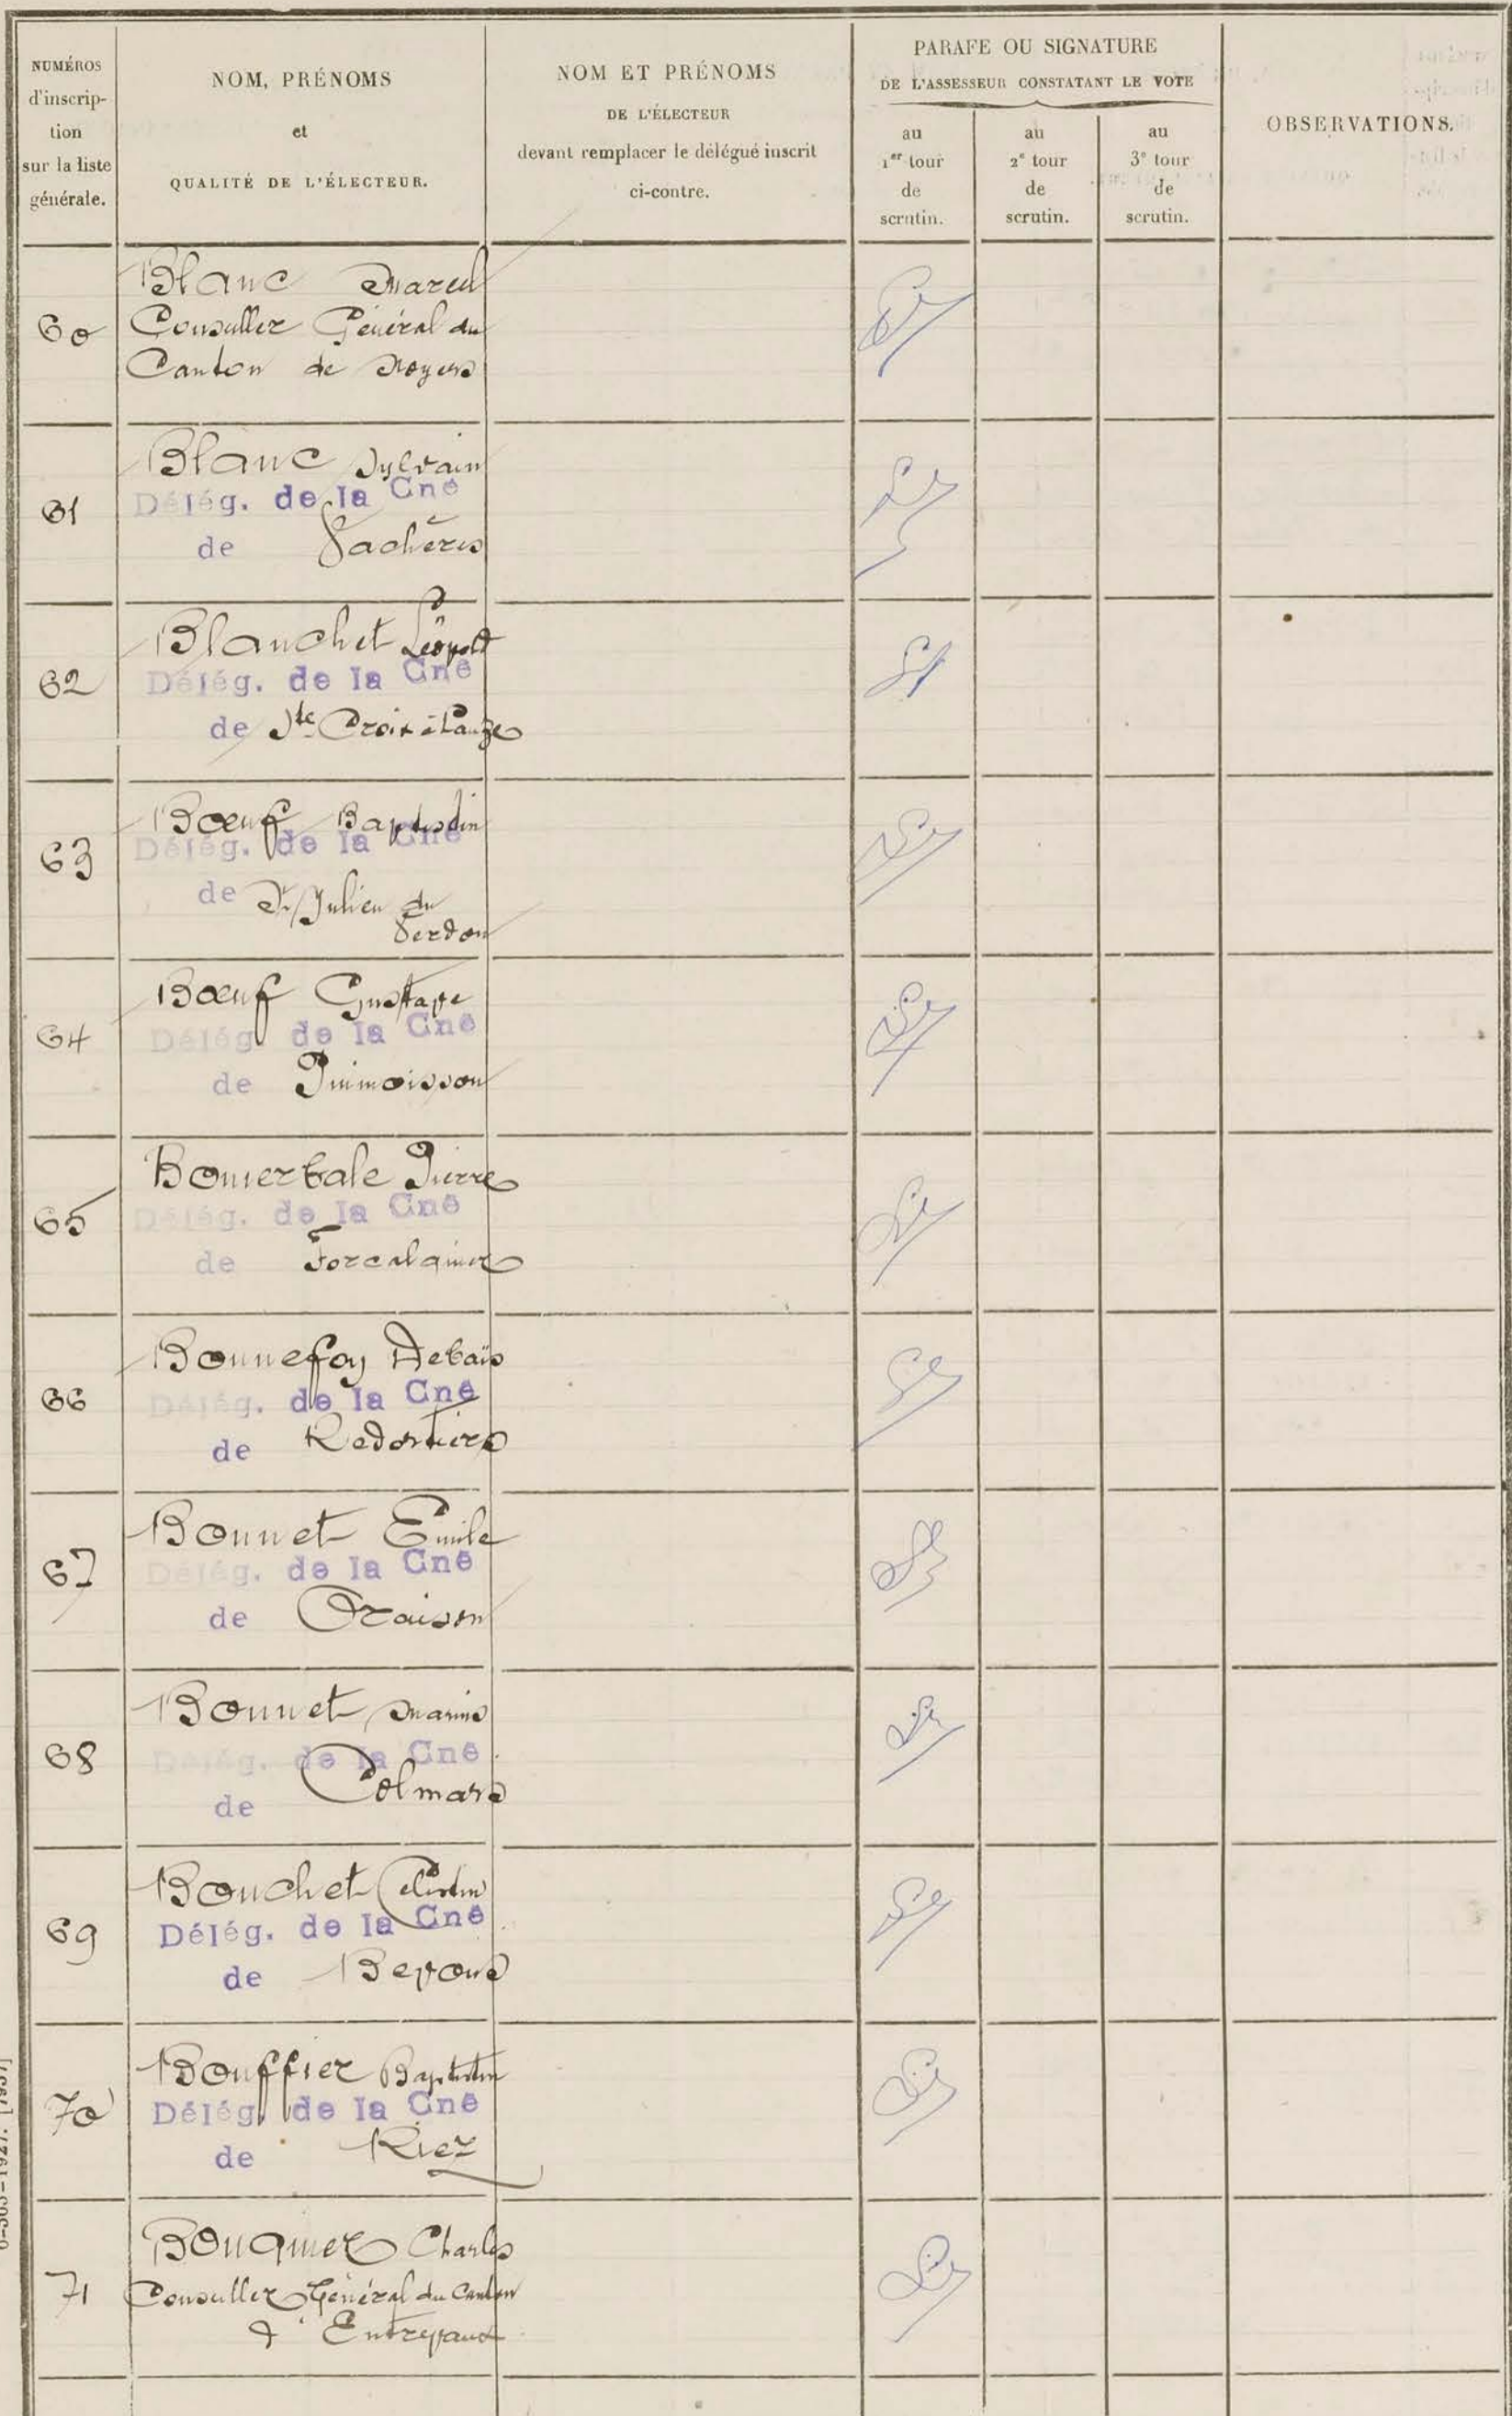 NUMÉROS
d'inscrip-
tion
sur la liste
générale.
NOM, PRÉNOMS
et
QUALITÉ DE L'ÉLECTEUR.
NOM ET PRÉNOMS
DE L'ÉLECTEUR
devant remplacer le délégué inscrit
ci-contre.
PARAFE OU SIGNATURE
DE L'ASSESSEUR CONSTATANT LE VOTE
au
1er tour
de
scrutin.
au
2e tour
de
scrutin.
au
3e tour
de
scrutin.
OBSERVATIONS.
60
Blanc Marcel
Conseiller Général du
Canton de Noyers
61
Blanc Sylvain
Délég. de la Cne
de Vachères
62
Blanchet Léopold
Délég. de la Cne
de Ste Croix à Lauze
63
Bœuf Baptistin
Délég. de la Cne
de St Julien du
Verdon
64
Bœuf Gustave
Délég. de la Cne
de Puimoisson
65
Pierre
Délég. de la Cne
de Forcalquier
66
Bonnefoy
Délég. de la Cne
de Redortiers
67
Bonnet Emile
Délég. de la Cne
de Oraison
68
Bonnet Marius
Délég. de la Cne
de Colmars
69
Bouchet Célestin
Délég. de la Cne
de Bevons
70
Bouffier Baptistin
Délég. de la Cne
de Riez
71
Bouquier Charles
Conseiller Général du Canton
d'Entrevaux